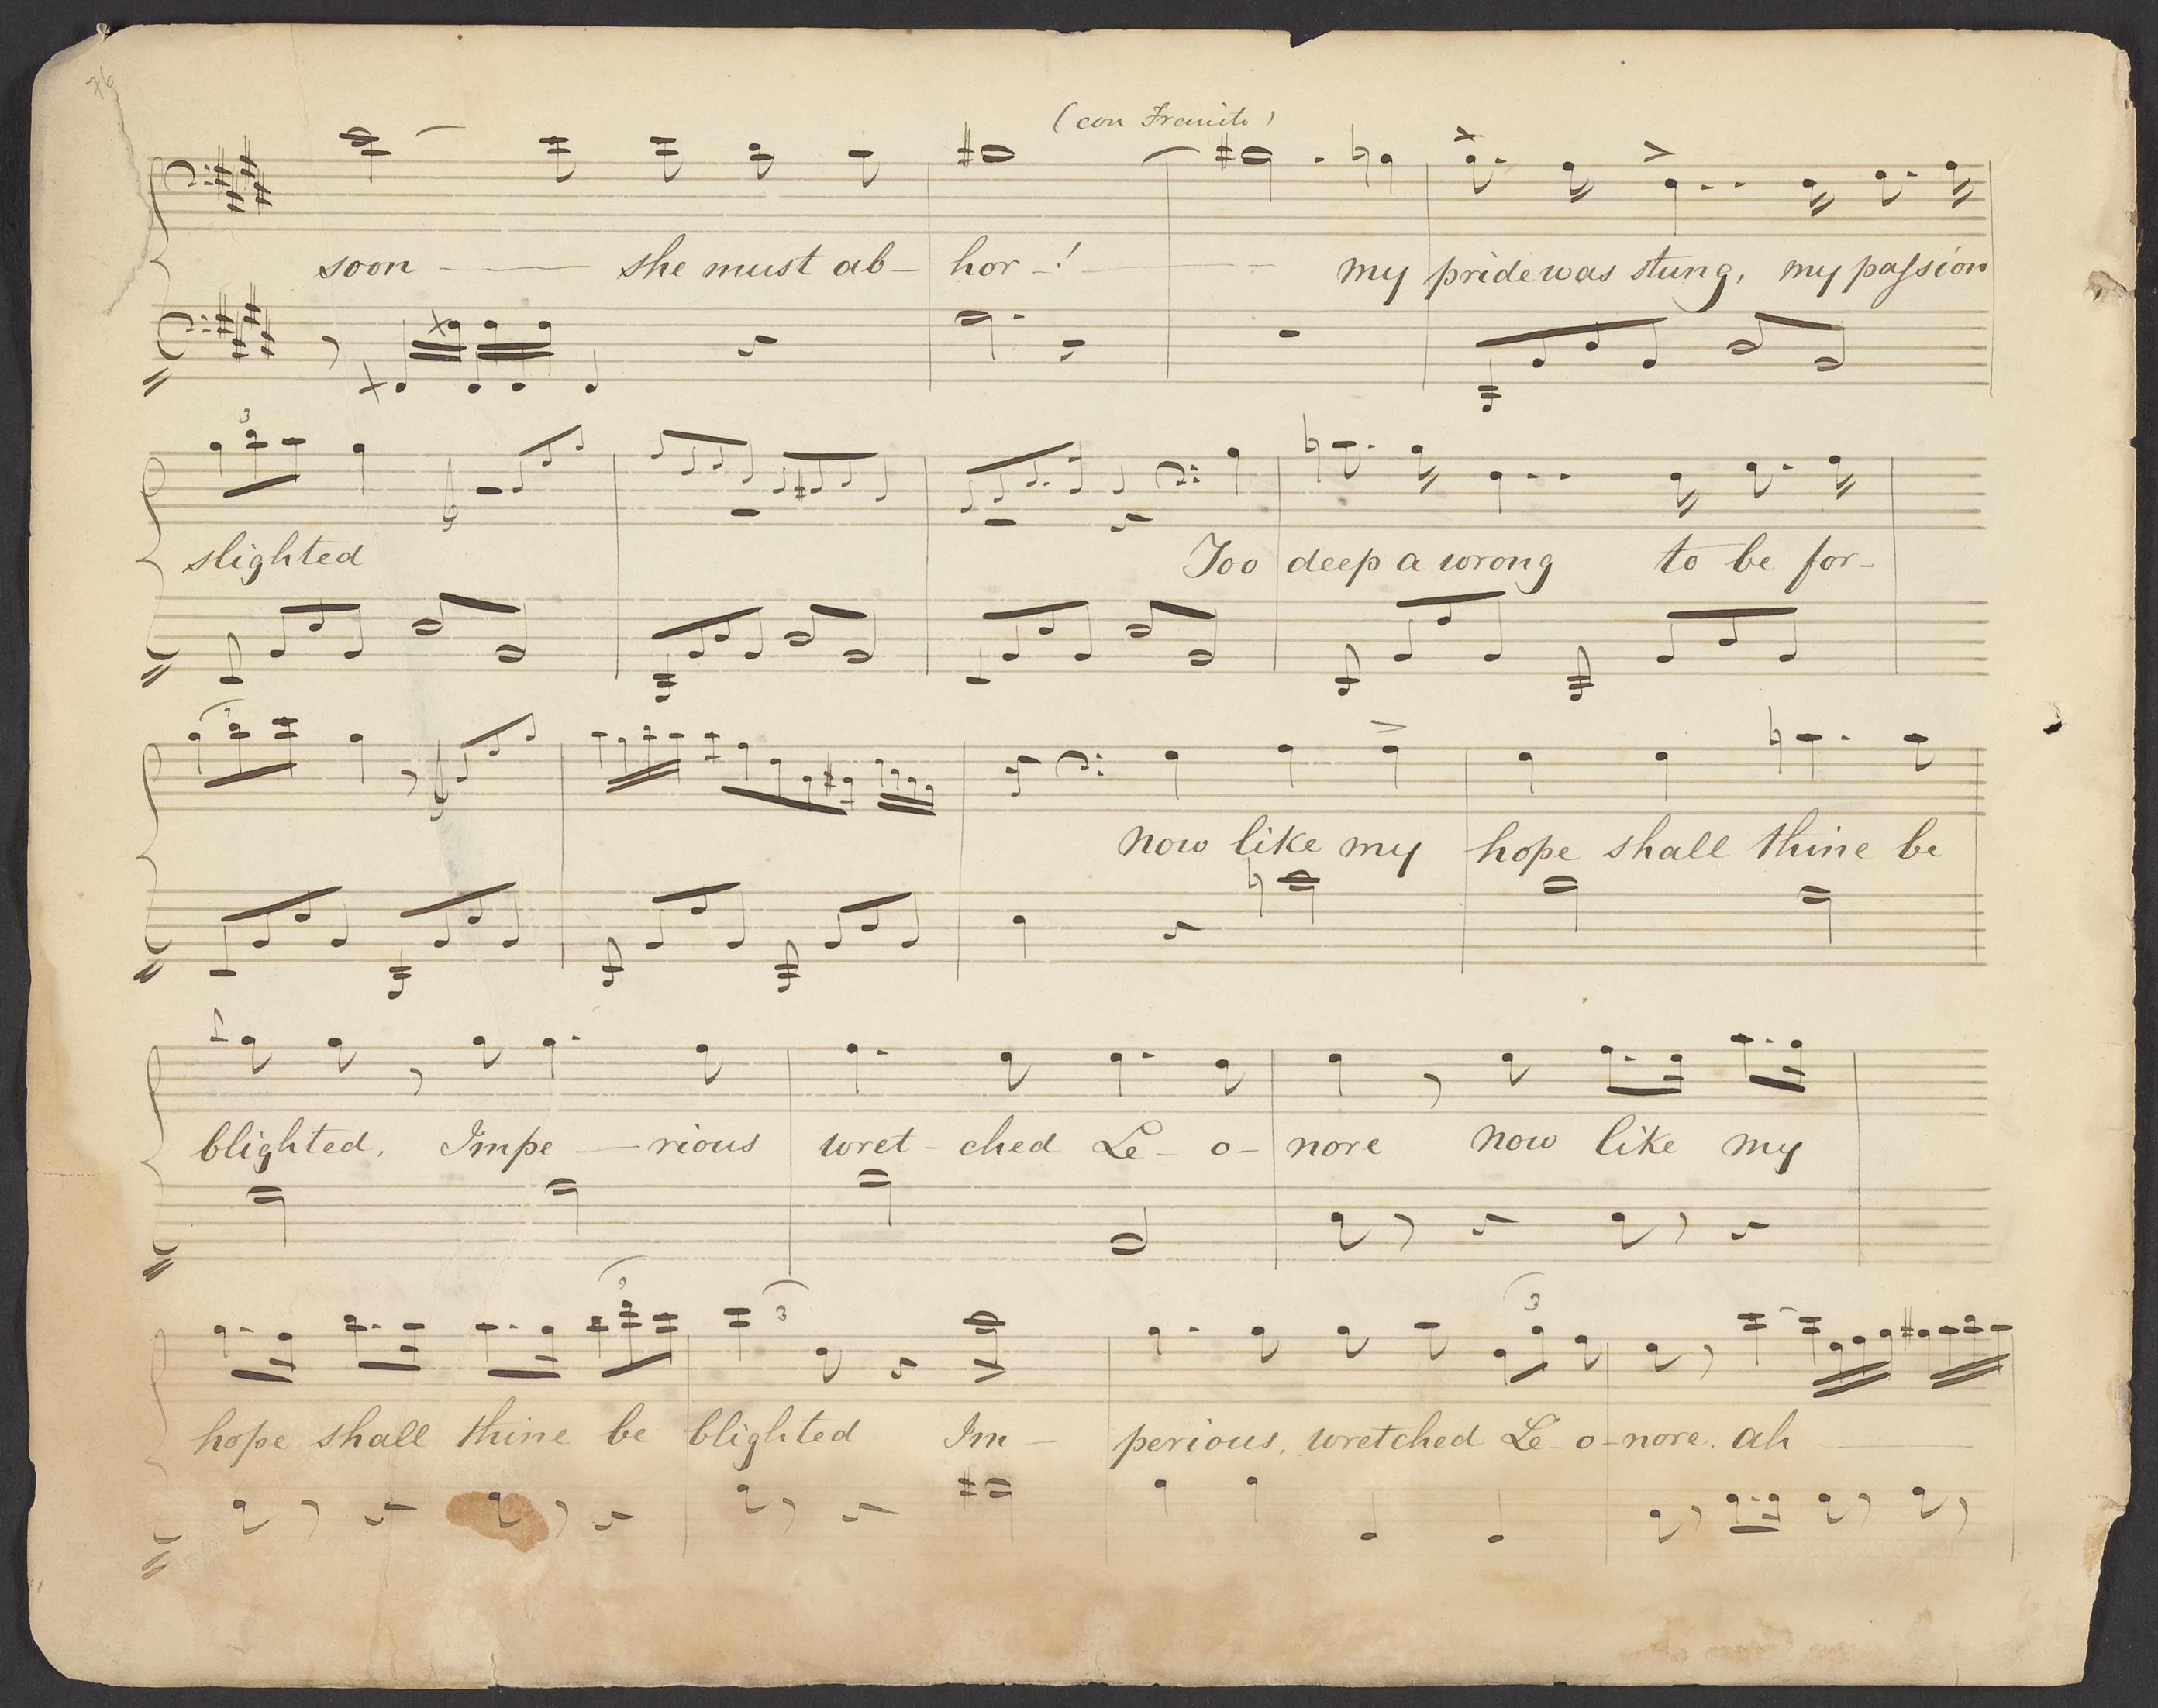 76
(con Fremito)
soon — she must ab- hor-! — my pride was stung, my paſsion
3
slighted Too deep a wrong to be for-
3
now like my hope shall thine be
blighted, Impe — rious wret - ched Le - o - nore now like my
3 3 3
hope shall thine be blighted Im — perious, wretched Le - o - nore. ah —